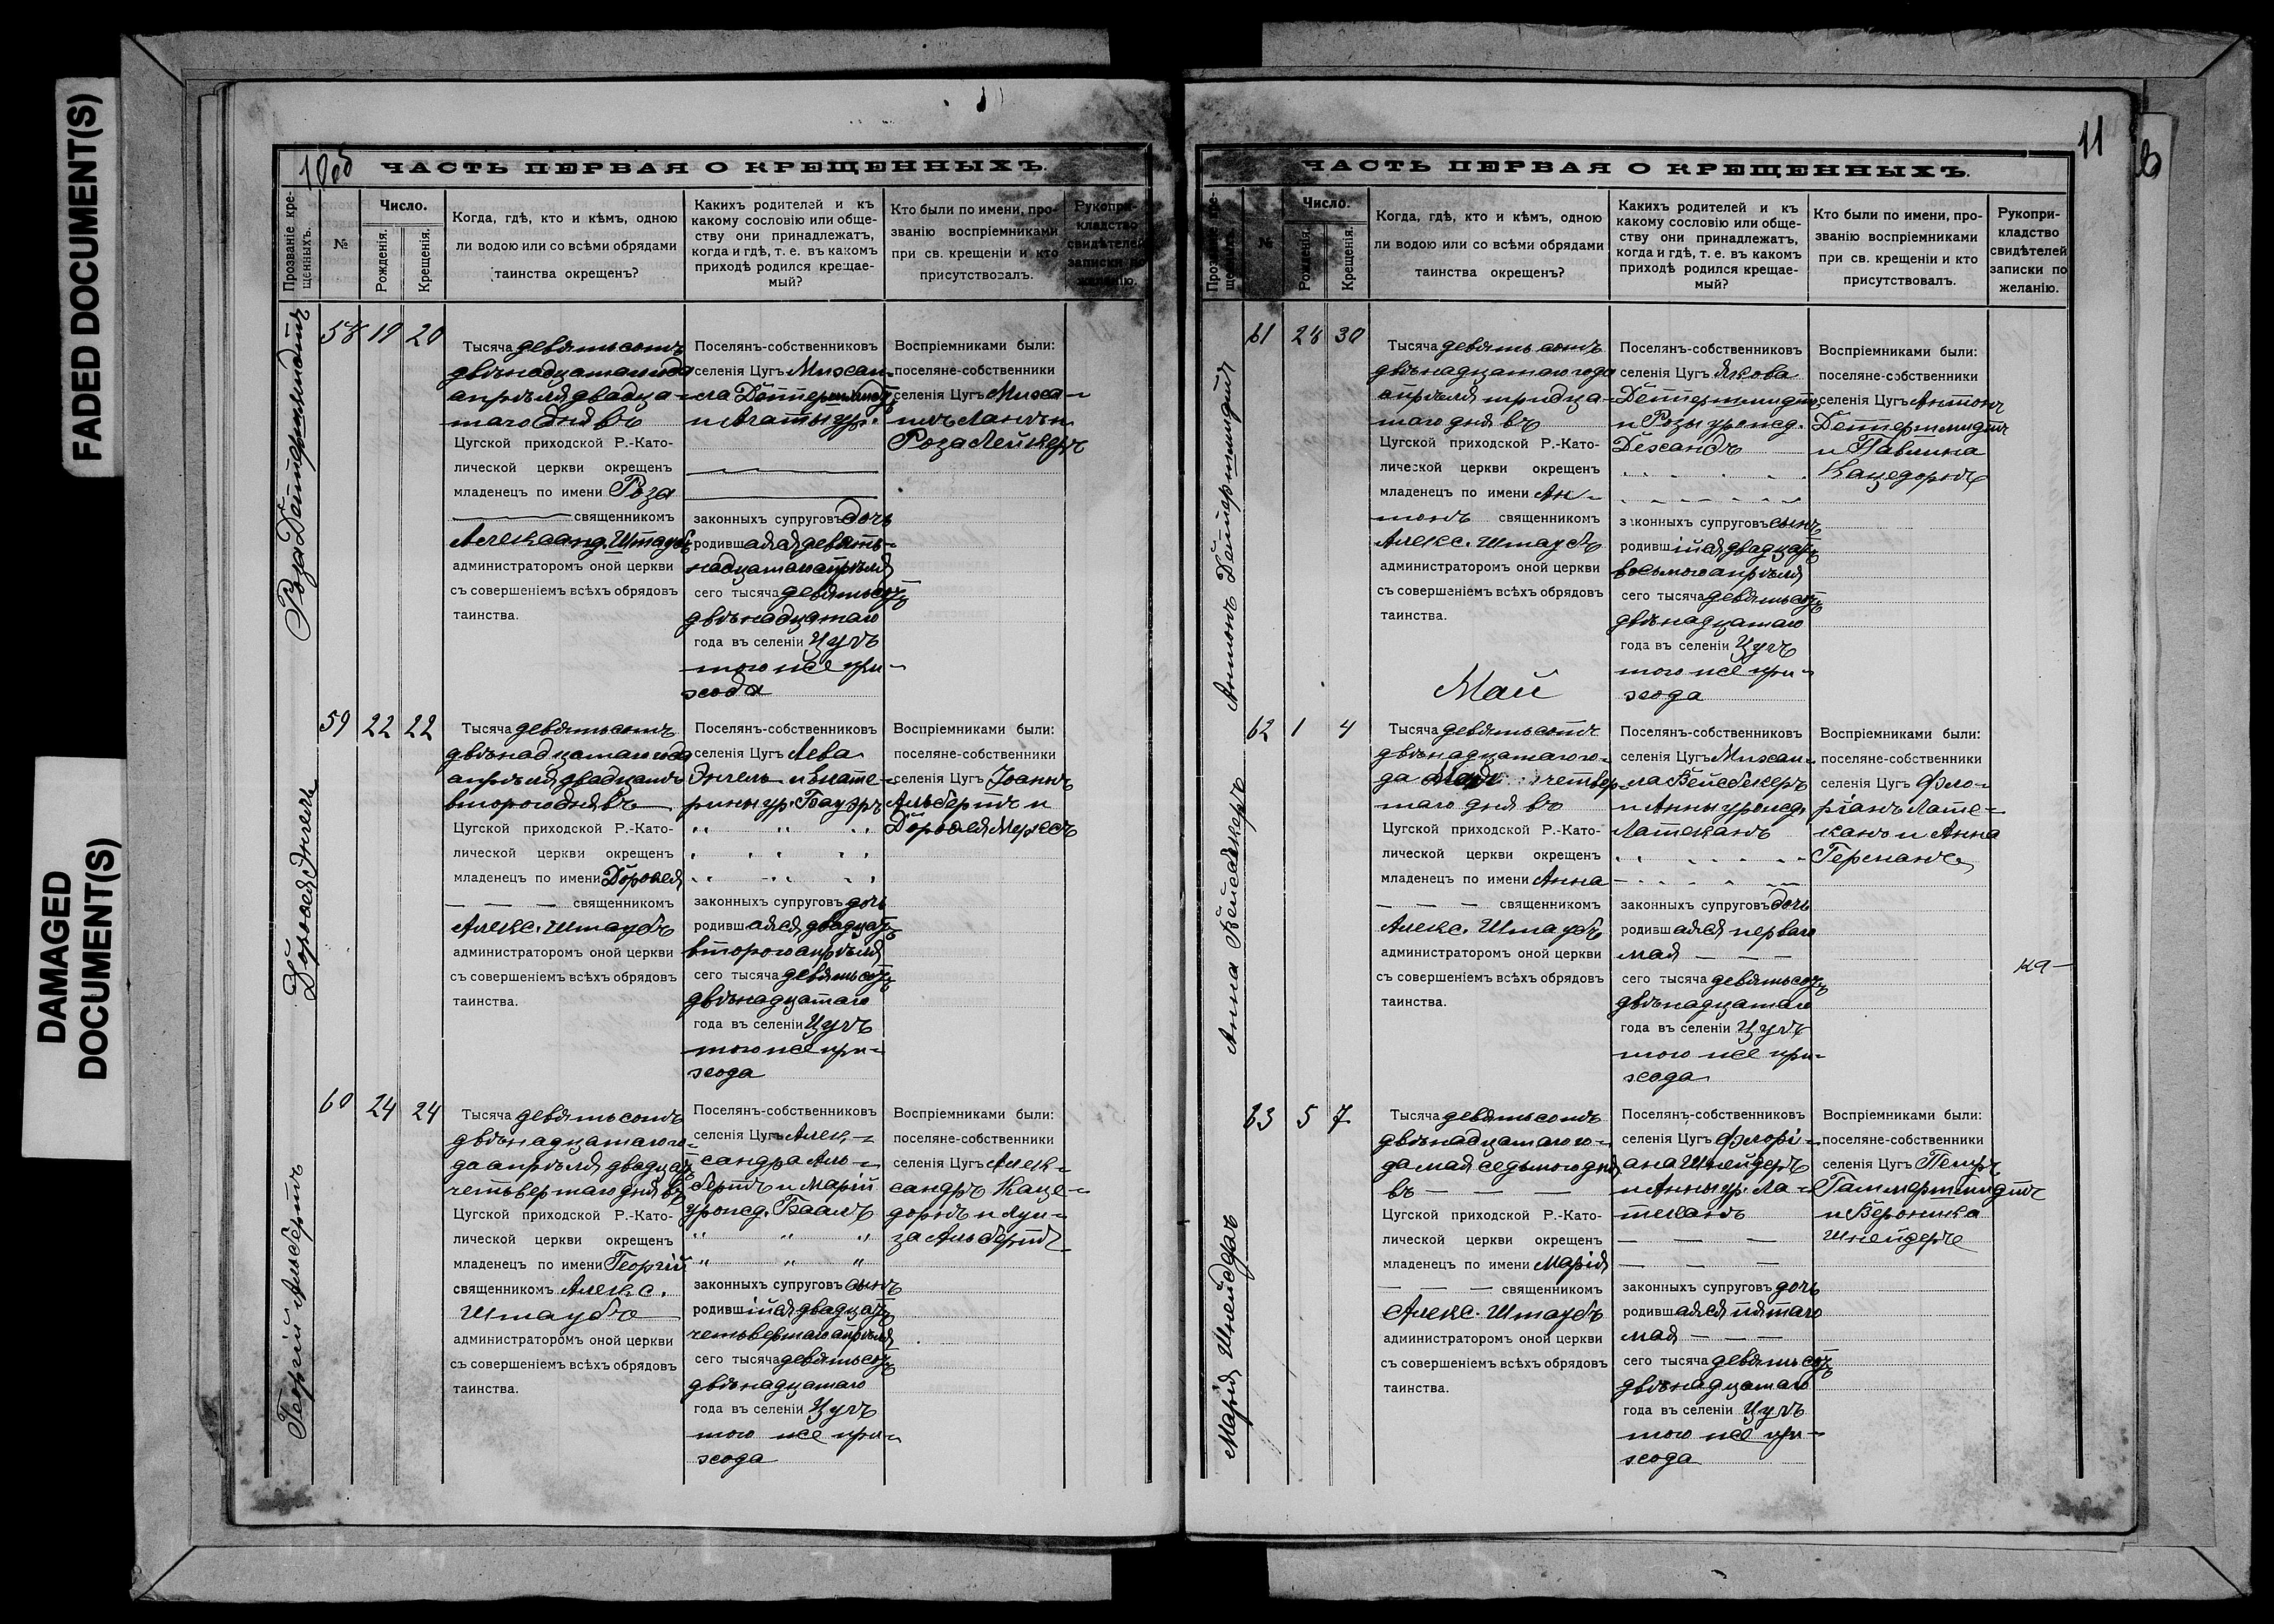 FADED DOCUMENT(S)
DAMAGED
DOCUMENT(S)
10об
ЧАСТЬ ПЕРВАЯ О КРЕЩЕННЫХЪ.
Прозваніе кре-
щенныхъ.
№
Число.
Рожденія.
Крещенія.
Когда, гдѣ, кто и кѣмъ, одною
ли водою или со всѣми обрядами
таинства окрещенъ?
Какихъ родителей и къ
какому сословію или обще-
ству они принадлежатъ,
когда и гдѣ, т. е. въ какомъ
приходѣ родился крещае-
мый?
Кто были по имени, про-
званію воспріемниками
при св. крещеніи и кто
присутствовалъ.
Рукопри-
кладство
свидѣтелей
записки по
желанію.
Роза Деттершмидтъ
58 19 20
Тысяча девятьсотъ
двѣнадцатаго года
апрѣля двадца-
таго дня въ
Цугской приходской Р.-Като-
лической церкви окрещенъ
младенецъ по имени Роза
священникомъ
Александ. Штаубъ
администраторомъ оной церкви
съ совершеніемъ всѣхъ обрядовъ
таинства.
Поселянъ-собственниковъ
селенія Цугъ Михаи-
ла Деттершмидтъ
и Агаты ур.
законныхъ супруговъ дочь
родившаяся девят-
надцатаго апрѣля
сего тысяча девятьсотъ
двѣнадцатаго
года въ селеніи Цугъ
того же при-
хода
Воспріемниками были:
поселяне-собственники
селенія Цугъ Миха-
илъ Лангъ и
Роза Лейкеръ
Доротея Энгель
59 22 22
Тысяча девятьсотъ
двѣнадцатаго года
апрѣля двадцать
второго дня въ
Цугской приходской Р.-Като-
лической церкви окрещенъ
младенецъ по имени Доротея
— — — священникомъ
Алекс. Штаубъ
администраторомъ оной церкви
съ совершеніемъ всѣхъ обрядовъ
таинства.
Поселянъ-собственниковъ
селенія Цугъ Лева
Энгель и Екате-
рины ур. Бауэръ
законныхъ супруговъ дочь
родившаяся двадцать
второго апрѣля
сего тысяча девятьсотъ
двѣнадцатаго
года въ селеніи Цугъ
того же при-
хода
Воспріемниками были:
поселяне-собственники
селенія Цугъ Іоаннъ
Альбертъ и
Доротея Меркель
Георгій Альбертъ
60 24 24
Тысяча девятьсотъ
двѣнадцатаго го-
да апрѣля двадцать
четвертаго дня въ
Цугской приходской Р.-Като-
лической церкви окрещенъ
младенецъ по имени Георгій
священникомъ Алекс.
Штаубъ
администраторомъ оной церкви
съ совершеніемъ всѣхъ обрядовъ
таинства.
Поселянъ-собственниковъ
селенія Цугъ Алек-
сандра Аль-
бертъ и Маріи
урожд. Баалъ
законныхъ супруговъ сынъ
родившійся двадцать
четвертаго апрѣля
сего тысяча девятьсотъ
двѣнадцатаго
года въ селеніи Цугъ
того же при-
хода
Воспріемниками были:
поселяне-собственники
селенія Цугъ Алек-
сандръ Каце-
дорнъ и Луи-
за Альбертъ
11
ЧАСТЬ ПЕРВАЯ О КРЕЩЕННЫХЪ.
Прозваніе кре-
щенныхъ.
№
Число.
Рожденія.
Крещенія.
Когда, гдѣ, кто и кѣмъ, одною
ли водою или со всѣми обрядами
таинства окрещенъ?
Какихъ родителей и къ
какому сословію или обще-
ству они принадлежатъ,
когда и гдѣ, т. е. въ какомъ
приходѣ родился крещае-
мый?
Кто были по имени, про-
званію воспріемниками
при св. крещеніи и кто
присутствовалъ.
Рукопри-
кладство
свидѣтелей
записки по
желанію.
Антонъ Деттершмидтъ
61 28 30
Тысяча девятьсотъ
двѣнадцатаго года
апрѣля тридца-
таго дня въ
Цугской приходской Р.-Като-
лической церкви окрещенъ
младенецъ по имени Ан-
тонъ священникомъ
Алекс. Штаубъ
администраторомъ оной церкви
съ совершеніемъ всѣхъ обрядовъ
таинства.
Поселянъ-собственниковъ
селенія Цугъ Якова
Деттершмидтъ
и Розы урожд.
Дехандъ
законныхъ супруговъ сынъ
родившійся двадцать
восьмого апрѣля
сего тысяча девятьсотъ
двѣнадцатаго
года въ селеніи Цугъ
того же при-
хода
Воспріемниками были:
поселяне-собственники
селенія Цугъ Антонъ
Деттершмидтъ
и Павлина
Кацедорнъ
Май
Анна Вейсбекеръ
62 1 4
Тысяча девятьсотъ
двѣнадцатаго го-
да мая четвер-
таго дня въ
Цугской приходской Р.-Като-
лической церкви окрещенъ
младенецъ по имени Анна
— — — священникомъ
Алекс. Штаубъ
администраторомъ оной церкви
съ совершеніемъ всѣхъ обрядовъ
таинства.
Поселянъ-собственниковъ
селенія Цугъ Михаи-
ла Вейсбекеръ
и Анны урожд.
Латеканъ
законныхъ супруговъ дочь
родившаяся перваго
мая — — —
сего тысяча девятьсотъ
двѣнадцатаго
года въ селеніи Цугъ
того же при-
хода
Воспріемниками были:
поселяне-собственники
селенія Цугъ Фло-
ріанъ Лате-
канъ и Анна
Германъ
Марія Шнейдеръ
63 5 7
Тысяча девятьсотъ
двѣнадцатаго го-
да мая седьмого дня
въ — — —
Цугской приходской Р.-Като-
лической церкви окрещенъ
младенецъ по имени Марія
— — — священникомъ
Алекс. Штаубъ
администраторомъ оной церкви
съ совершеніемъ всѣхъ обрядовъ
таинства.
Поселянъ-собственниковъ
селенія Цугъ Флорі-
ана Шнейдеръ
и Анны ур. Ла-
теканъ
законныхъ супруговъ дочь
родившаяся пятаго
мая — — —
сего тысяча девятьсотъ
двѣнадцатаго
года въ селеніи Цугъ
того же при-
хода
Воспріемниками были:
поселяне-собственники
селенія Цугъ Петръ
Гаммершмидтъ
и Вероника
Шнейдеръ